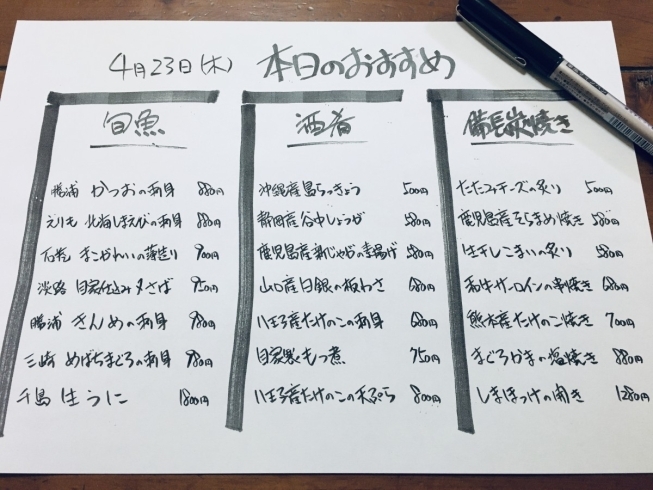 4月23日(木) 本日のおすすめ
旬魚
勝浦 かつおの刺身 880円
えりも 北海しまえびの刺身 880円
石巻 まこがれいの薄造り 900円
淡路 自家仕込み〆さば 950円
勝浦 きんめの刺身 980円
三崎 めばちまぐろの刺身 980円
千島 生うに 1800円
酒肴
沖縄産島らっきょう 500円
静岡産谷中しょうが 580円
鹿児島産新じゃがの素揚げ 580円
山口産白銀の板わさ 680円
八王子産たけのこの刺身 680円
自家製もつ煮 750円
八王子産たけのこの天ぷら 800円
備長炭焼き
たたみチーズの炙り 500円
鹿児島産そらまめ焼き 580円
生干しこまいの炙り 580円
和牛サーロインの串焼き 680円
熊本産たけのこ焼き 700円
まぐろかまの塩焼き 880円
しまほっけの開き 1280円